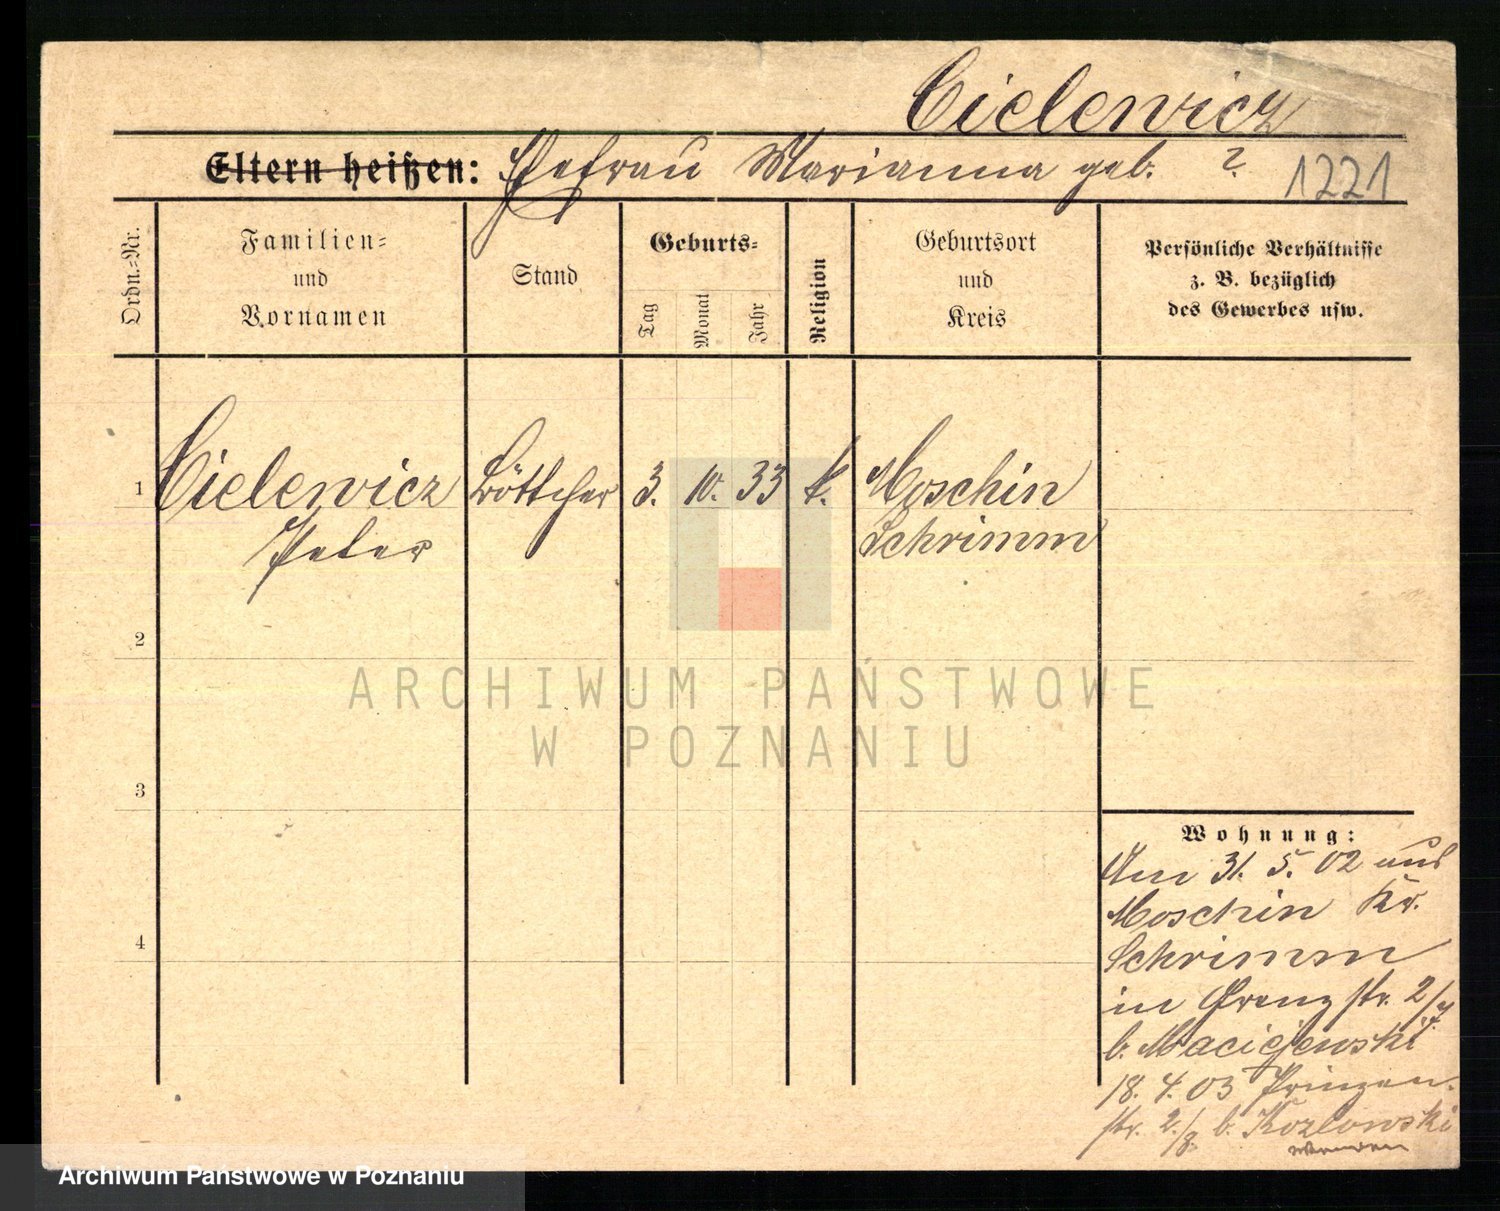 Cielewicz
Eltern heißen: Ehefrau Marianna geb. ?
1221
Ordn.=Nr.
Familien=
und
Vornamen
Stand
Geburts=
Tag
Monat
Jahr
Religion
Geburtsort
und
Kreis
Persönliche Verhältnisse
z. B. bezüglich
des Gewerbes usw.
1 Cielewicz Böttcher 3. 10. 33 k. Moschin
Peter Schrimm
2
ARCHIWUM PAŃSTWOWE
W POZNANIU
3
Wohnung:
Am 31. 5. 02 aus
Moschin Kr.
Schrimm
in Grenzstr. 2/
b. Maciejewski
18. 4. 03 Prinzen-
str. 2./8. b. Kozlowski
4
Archiwum Państwowe w Poznaniu